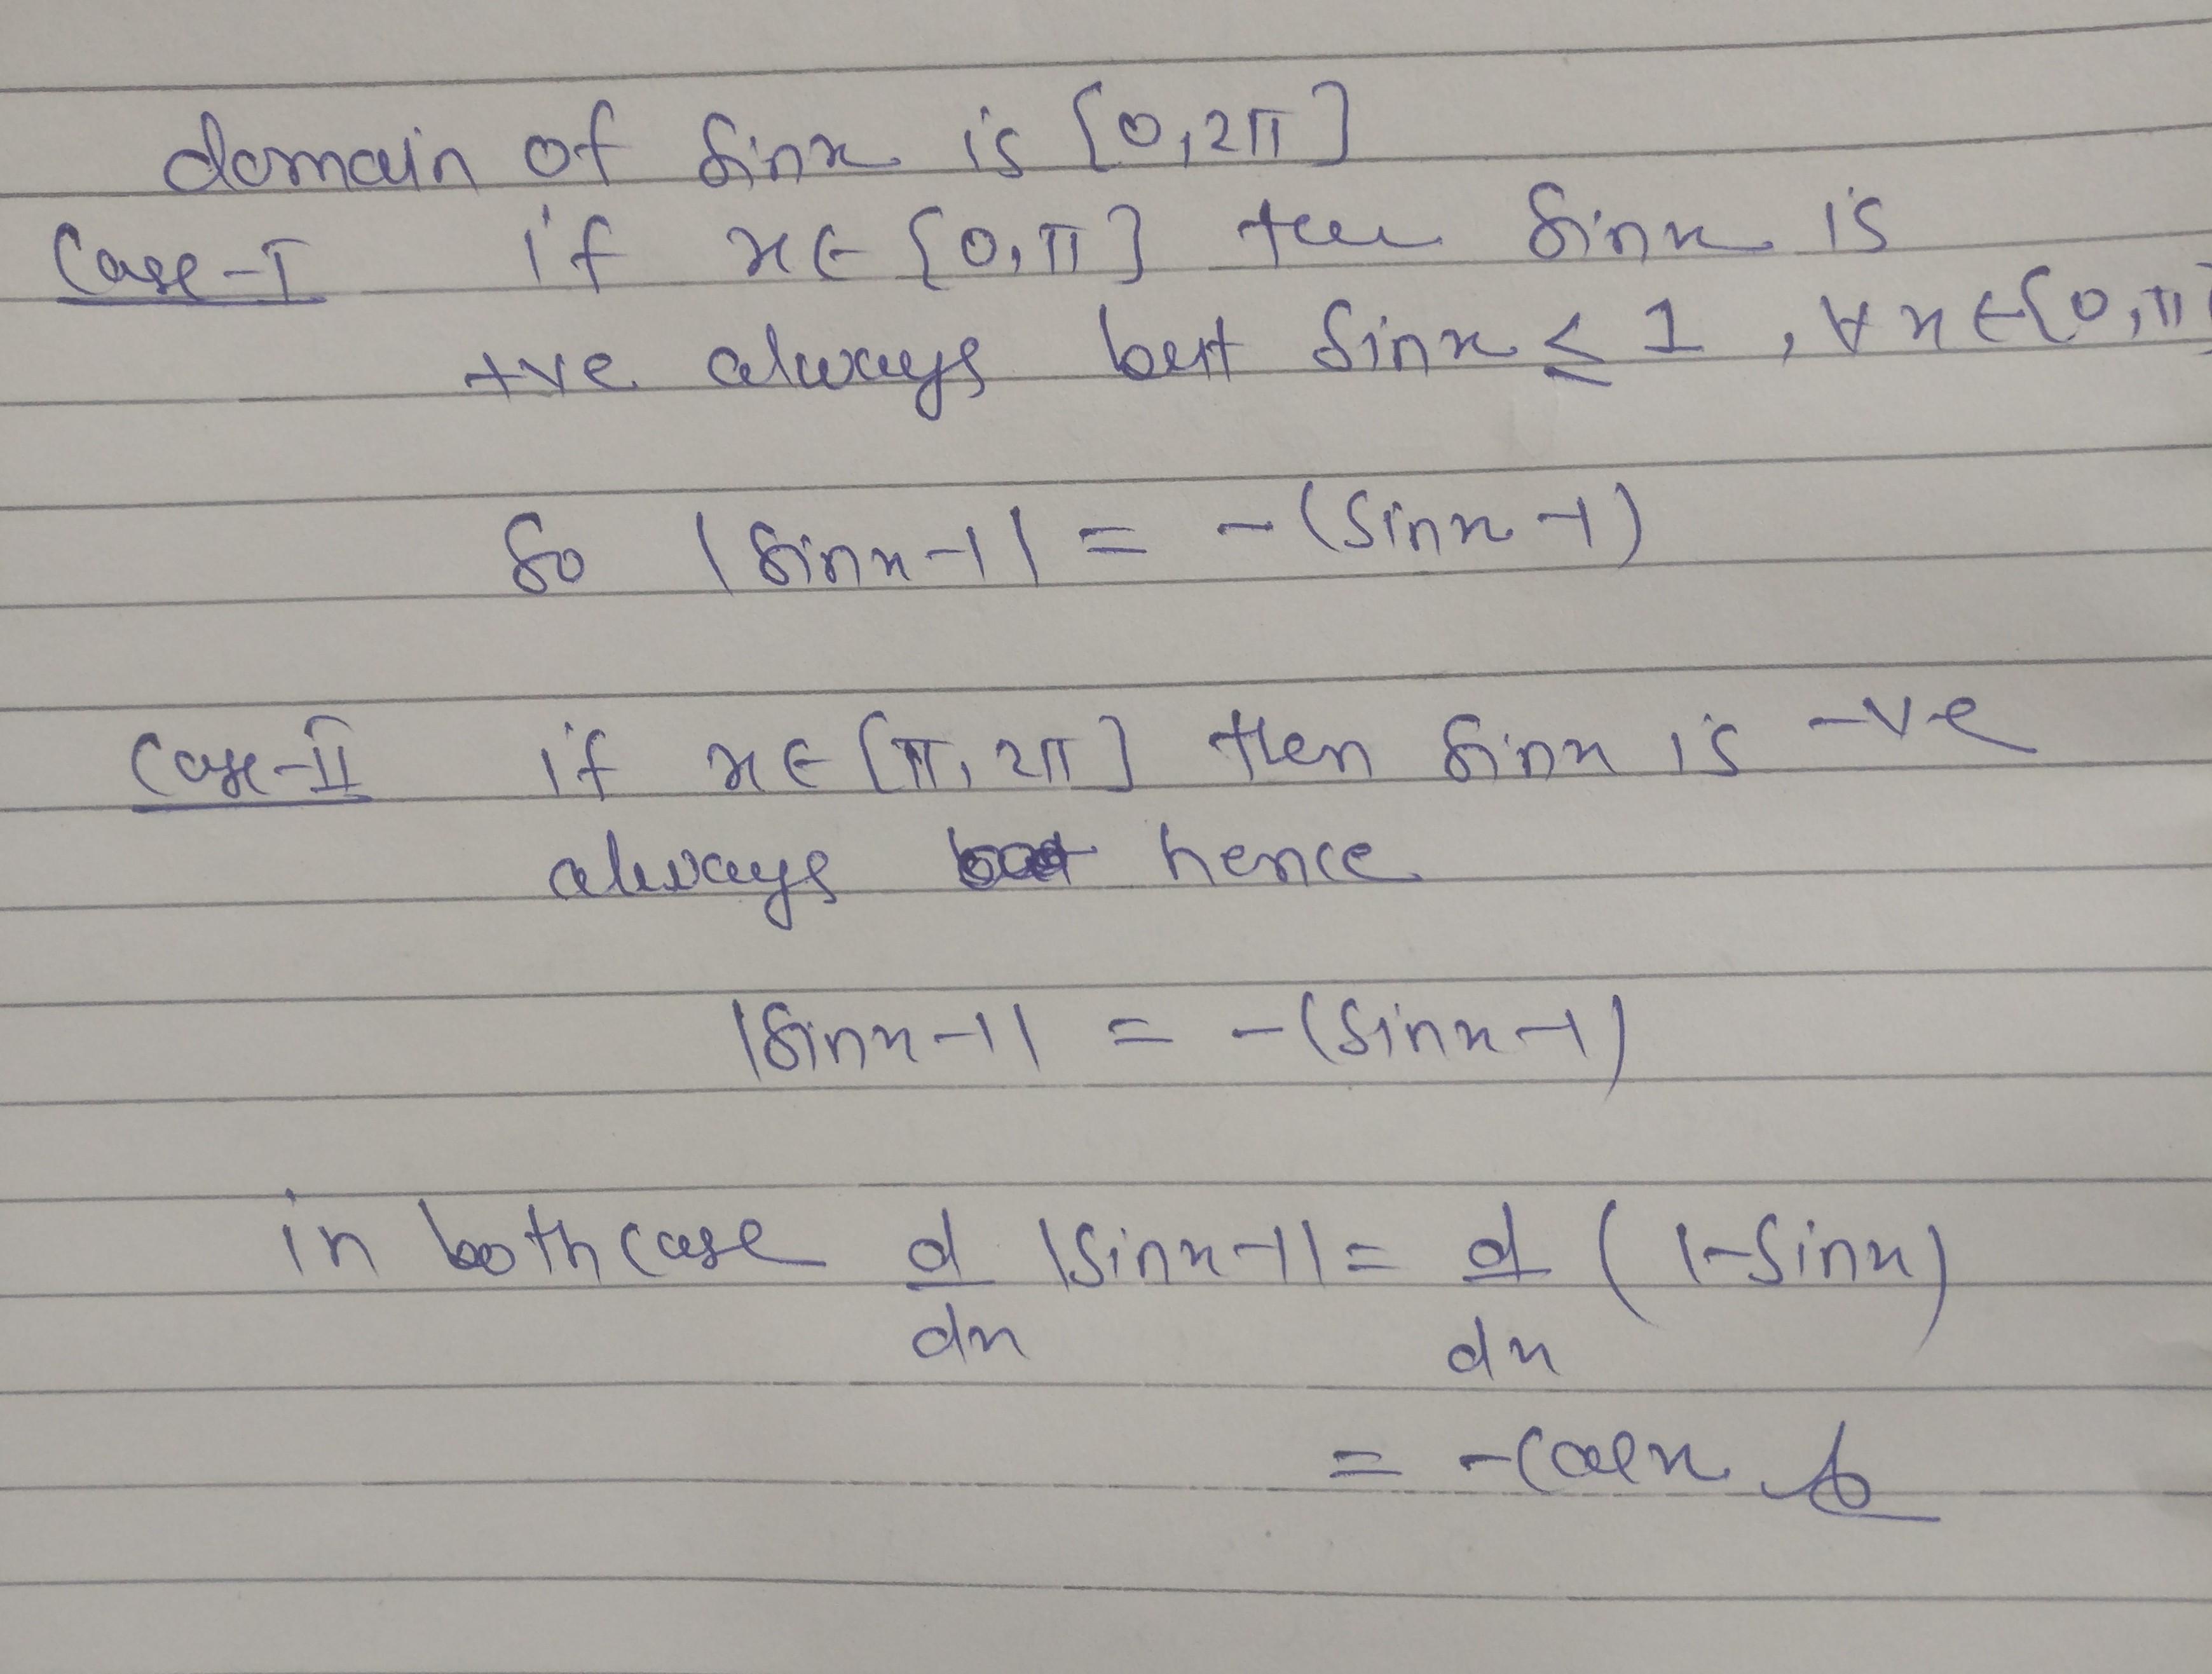 domain of sinx is [0,2π]
Case-I if x∈[0,π] then sinx is
+ve always but sinx ≤ 1 , ∀x∈[0,π]
So |sinx-1| = -(sinx-1)
Case-II if x∈[π,2π] then sinx is -ve
always hence
|sinx-1| = -(sinx-1)
in both case d/dx |sinx-1| = d/dx (1-sinx)
= -cosx